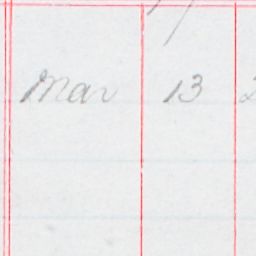 Mar 13